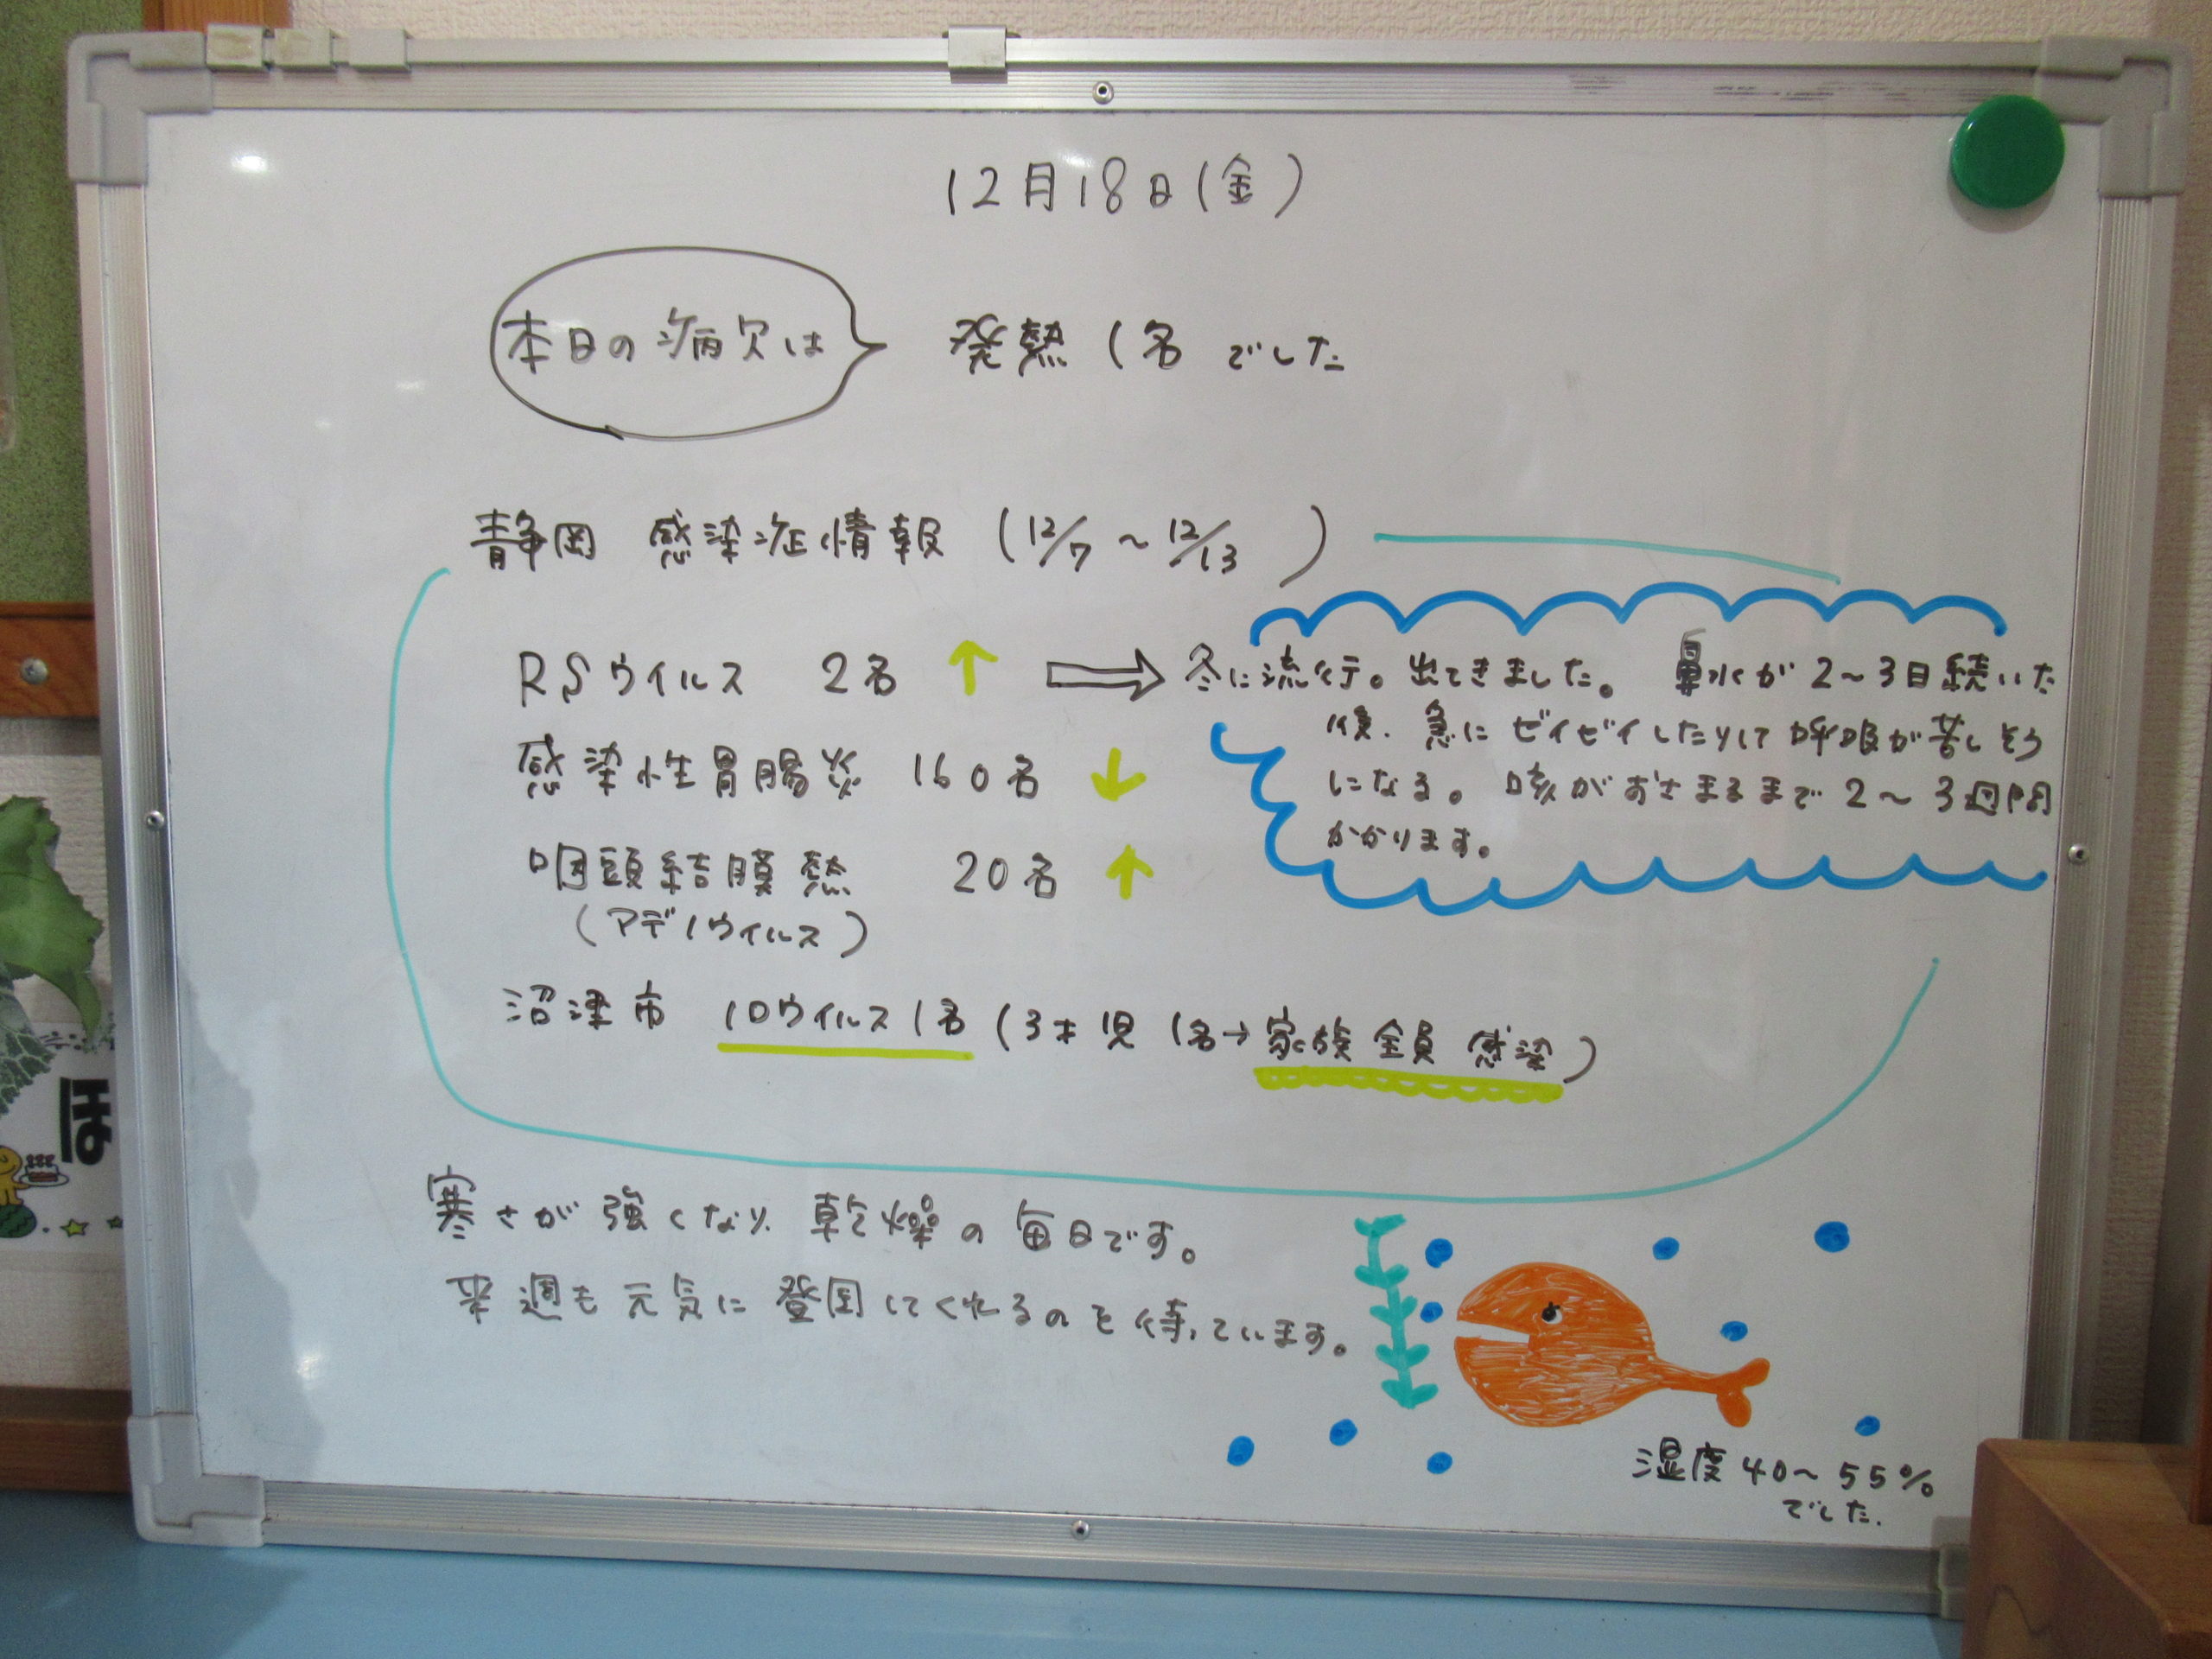 12月18日(金)
本日の病欠は 発熱 1名 でした
静岡 感染症情報 (12/7～12/13)
RSウイルス 2名 ↑ ⇒ 冬に流行。出てきました。 鼻水が2～3日続いた
後、急に ゼイゼイしたりして 呼吸が苦しそう
になる。 咳がおさまるまで 2～3週間
かかります。
感染性胃腸炎 160名 ↓
咽頭結膜熱 20名 ↑
(アデノウイルス)
沼津市 ロウイルス1名 (3才児 1名→家族全員 感染)
寒さが 強くなり、乾燥の毎日です。
来週も 元気に 登園してくれるのを待っています。
湿度40～55%
でした.
ほ